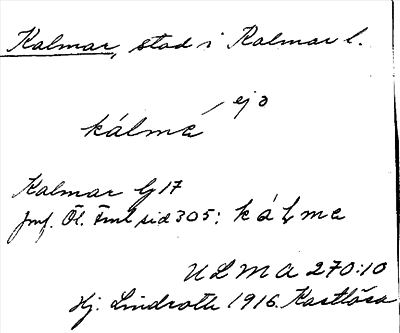 Kalmar, stad i Kalmar l.
ej o
kálma
Kalmar Lj 17
jmf. Öl. Fml sid 305: kálma
ULMA 270:10
Hj. Lindroth 1916. Kastlösa